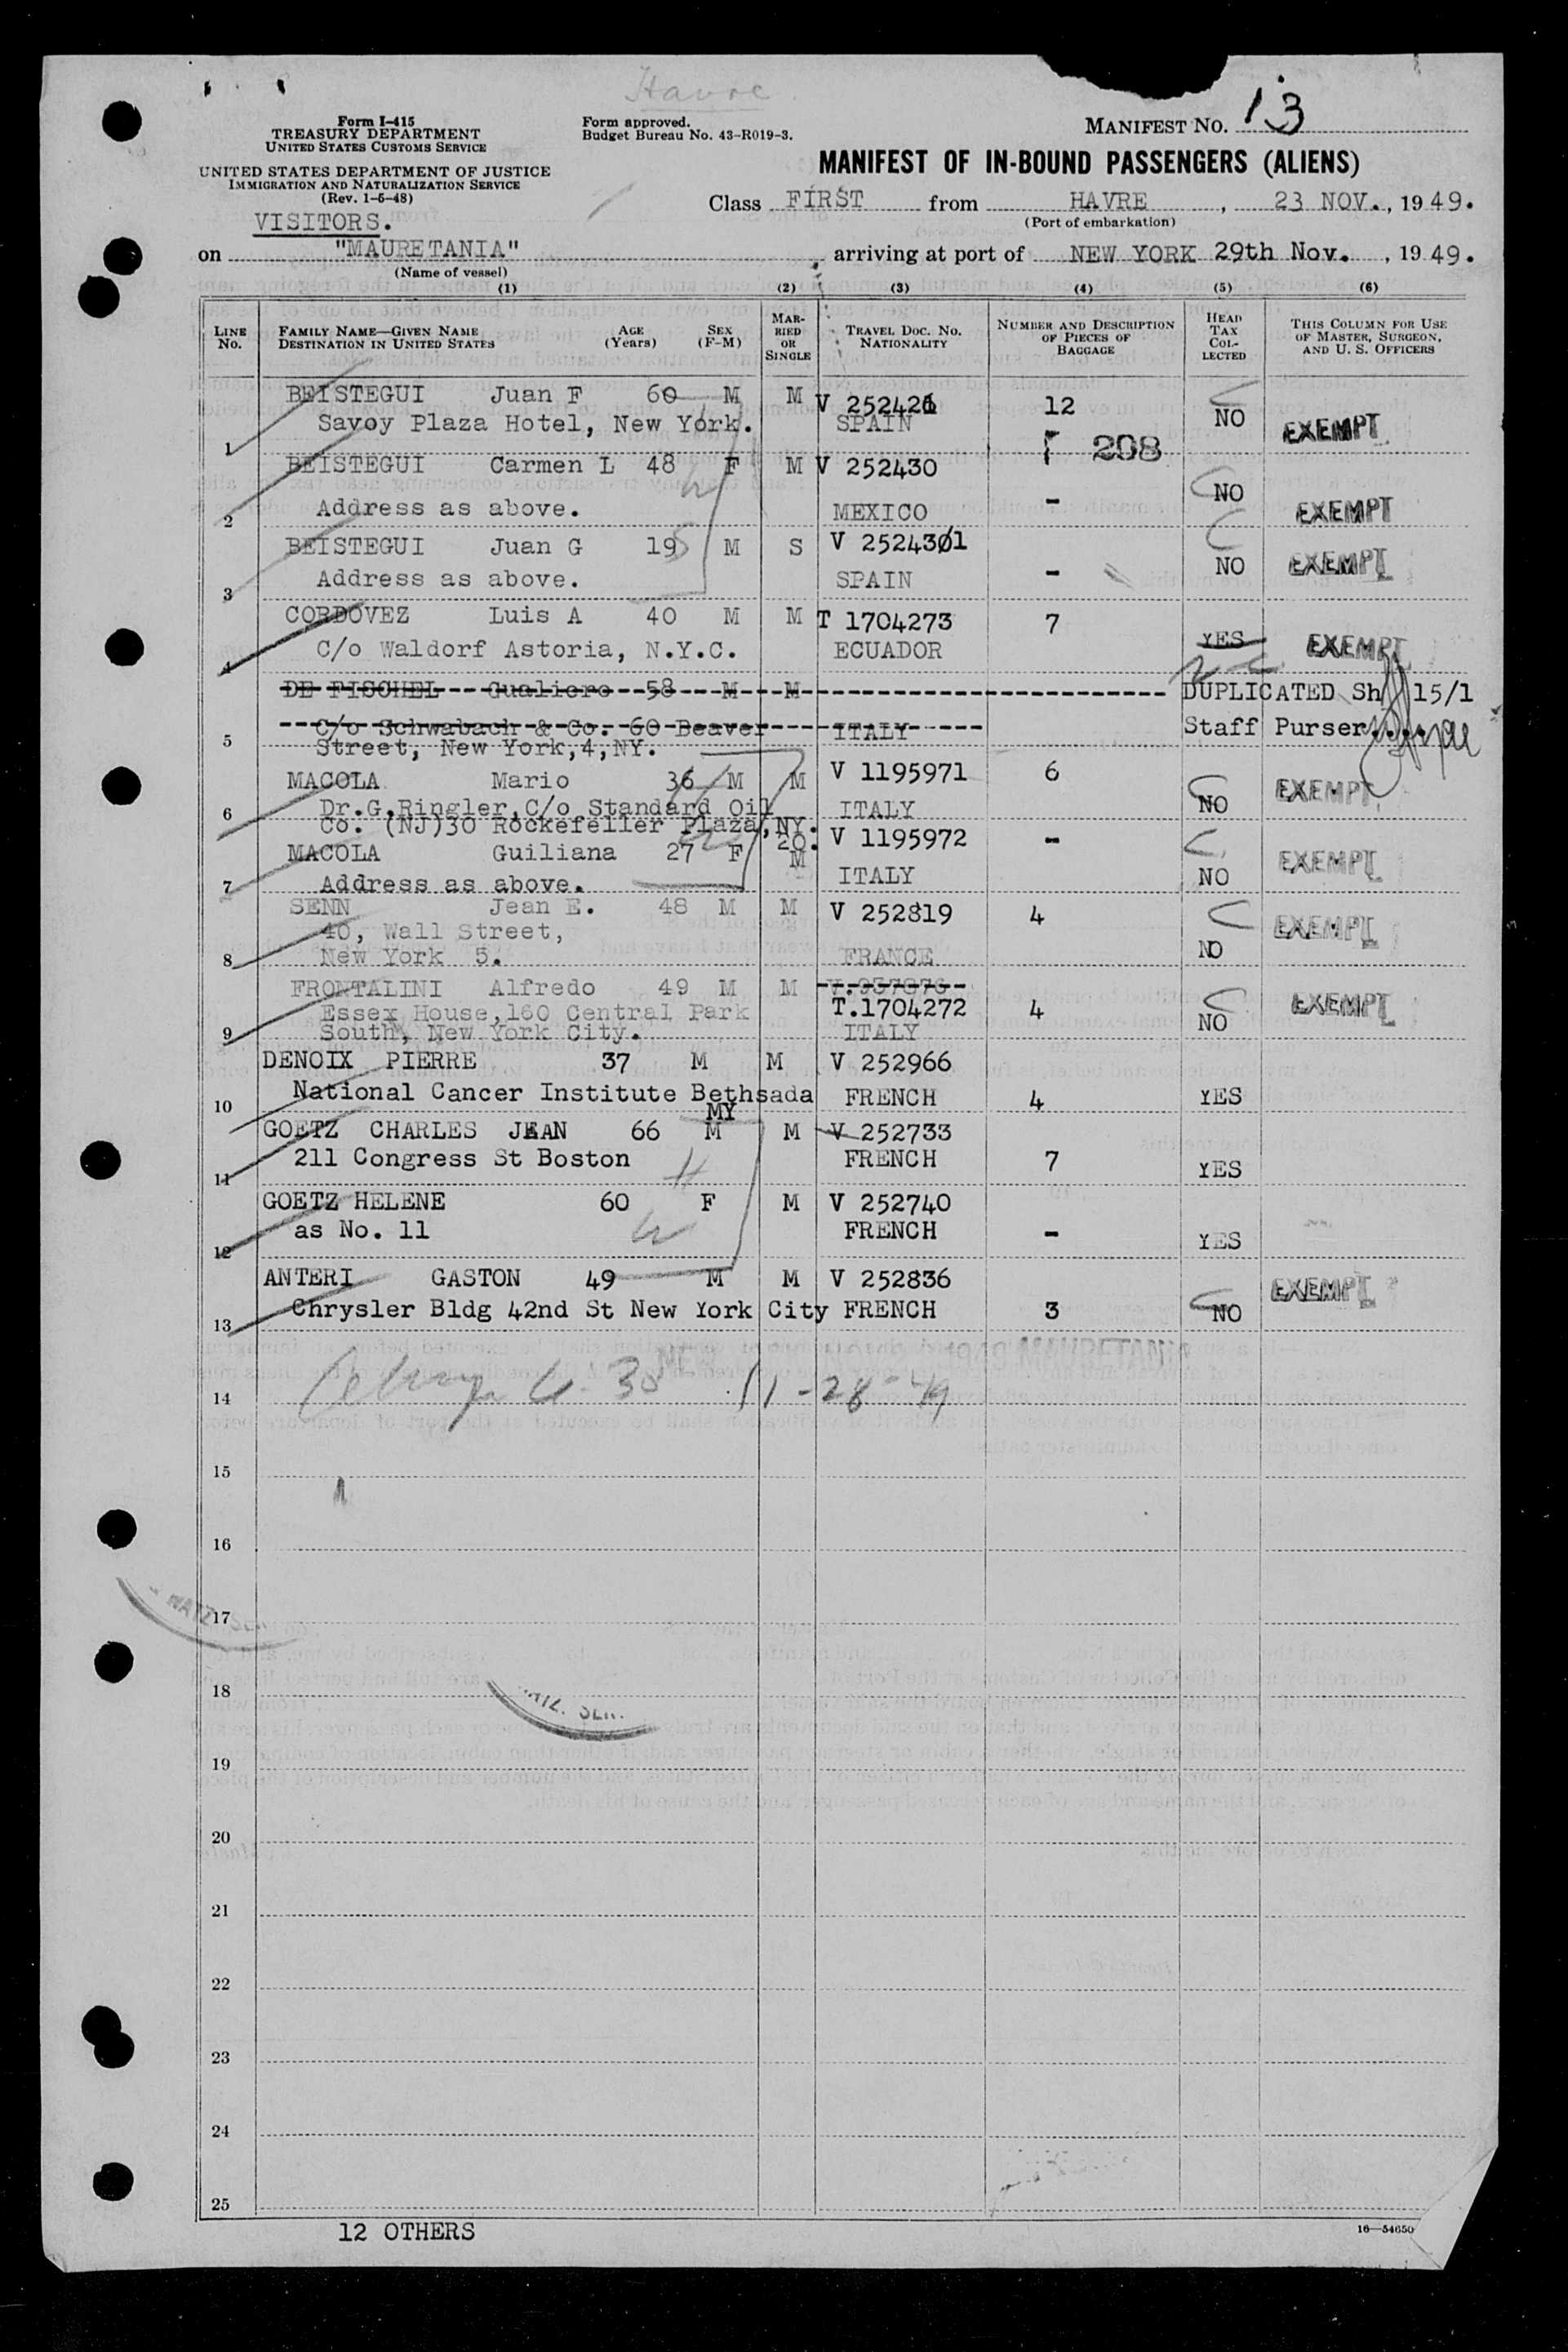 Havre
Form I-415
TREASURY DEPARTMENT
UNITED STATES CUSTOMS SERVICE
UNITED STATES DEPARTMENT OF JUSTICE
IMMIGRATION AND NATURALIZATION SERVICE
(Rev. 1-5-48)
Form approved.
Budget Bureau No. 43-R019-3.
MANIFEST NO. 13
MANIFEST OF IN-BOUND PASSENGERS (ALIENS)
Class FIRST from HAVRE, 23 NOV., 1949.
(Port of embarkation)
VISITORS.
on "MAURETANIA" arriving at port of NEW YORK 29th Nov., 1949.
(Name of vessel)
(1) (2) (3) (4) (5) (6)
LINE No. FAMILY NAME—GIVEN NAME DESTINATION IN UNITED STATES AGE (Years) SEX (F-M) MARRIED OR SINGLE TRAVEL DOC. NO. NATIONALITY NUMBER AND DESCRIPTION OF PIECES OF BAGGAGE HEAD TAX COLLECTED THIS COLUMN FOR USE OF MASTER, SURGEON, AND U. S. OFFICERS
BEISTEGUI Juan F 60 M M V 12 NO EXEMPT
1 Savoy Plaza Hotel, New York. SPAIN
208
BEISTEGUI Carmen L 48 F M V 252430 - NO EXEMPT
2 Address as above. MEXICO
BEISTEGUI Juan G 19 M S V 2524301 - NO EXEMPT
3 Address as above. SPAIN
CORDOVEZ Luis A 40 M M T 1704273 7 YES EXEMPT
4 C/o Waldorf Astoria, N.Y.C. ECUADOR
DE FISCHEL Gualiero 58 M M DUPLICATED Sh 15/1
5 C/o Schwabach & Co. 60 Beaver ITALY Staff Purser
Street, New York,4,NY.
MACOLA Mario 36 M M V 1195971 6 NO EXEMPT
6 Dr.G.Ringler,C/o Standard Oil ITALY
Co. (NJ)30 Rockefeller Plaza,NY. 20.
MACOLA Guiliana 27 F M V 1195972 - NO EXEMPT
7 Address as above. ITALY
SENN Jean E. 48 M M V 252819 4 NO EXEMPT
40, Wall Street,
8 New York 5. FRANCE
FRONTALINI Alfredo 49 M M
Essex House,160 Central Park T.1704272 4 NO EXEMPT
9 South, New York City. ITALY
DENOIX PIERRE 37 M M V 252966
10 National Cancer Institute Bethsada MY FRENCH 4 YES
GOETZ CHARLES JEAN 66 M M V 252733
11 211 Congress St Boston FRENCH 7 YES
GOETZ HELENE 60 F M V 252740
12 as No. 11 FRENCH - YES
ANTERI GASTON 49 M M V 252836 EXEMPT
13 Chrysler Bldg 42nd St New York City FRENCH 3 NO
14 11-28-49
15
16
17
18
19
20
21
22
23
24
25
12 OTHERS
16—54650